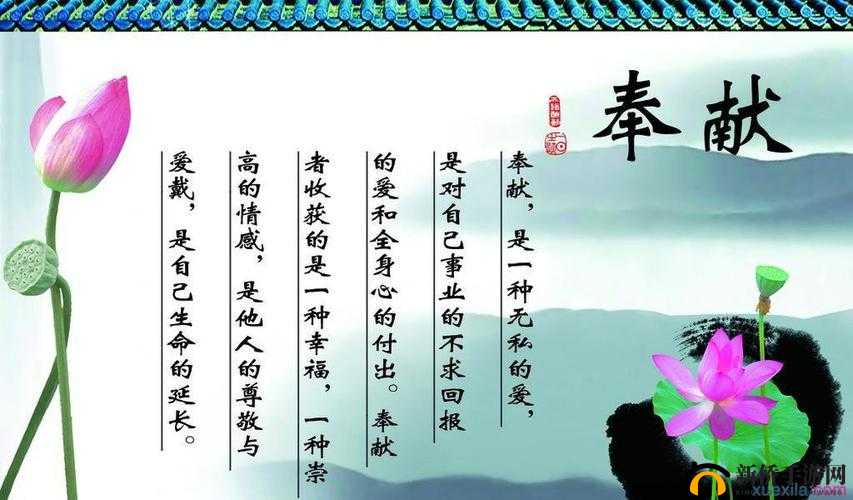 奉献
奉献，是一种无私的爱，
是对自己事业的不求回报
的爱和全身心的付出。奉献
者收获的是一种幸福，一种崇
高的情感，是他人的尊敬与
爱戴，是自己生命的延长。
新侨手游网
xuexila.com